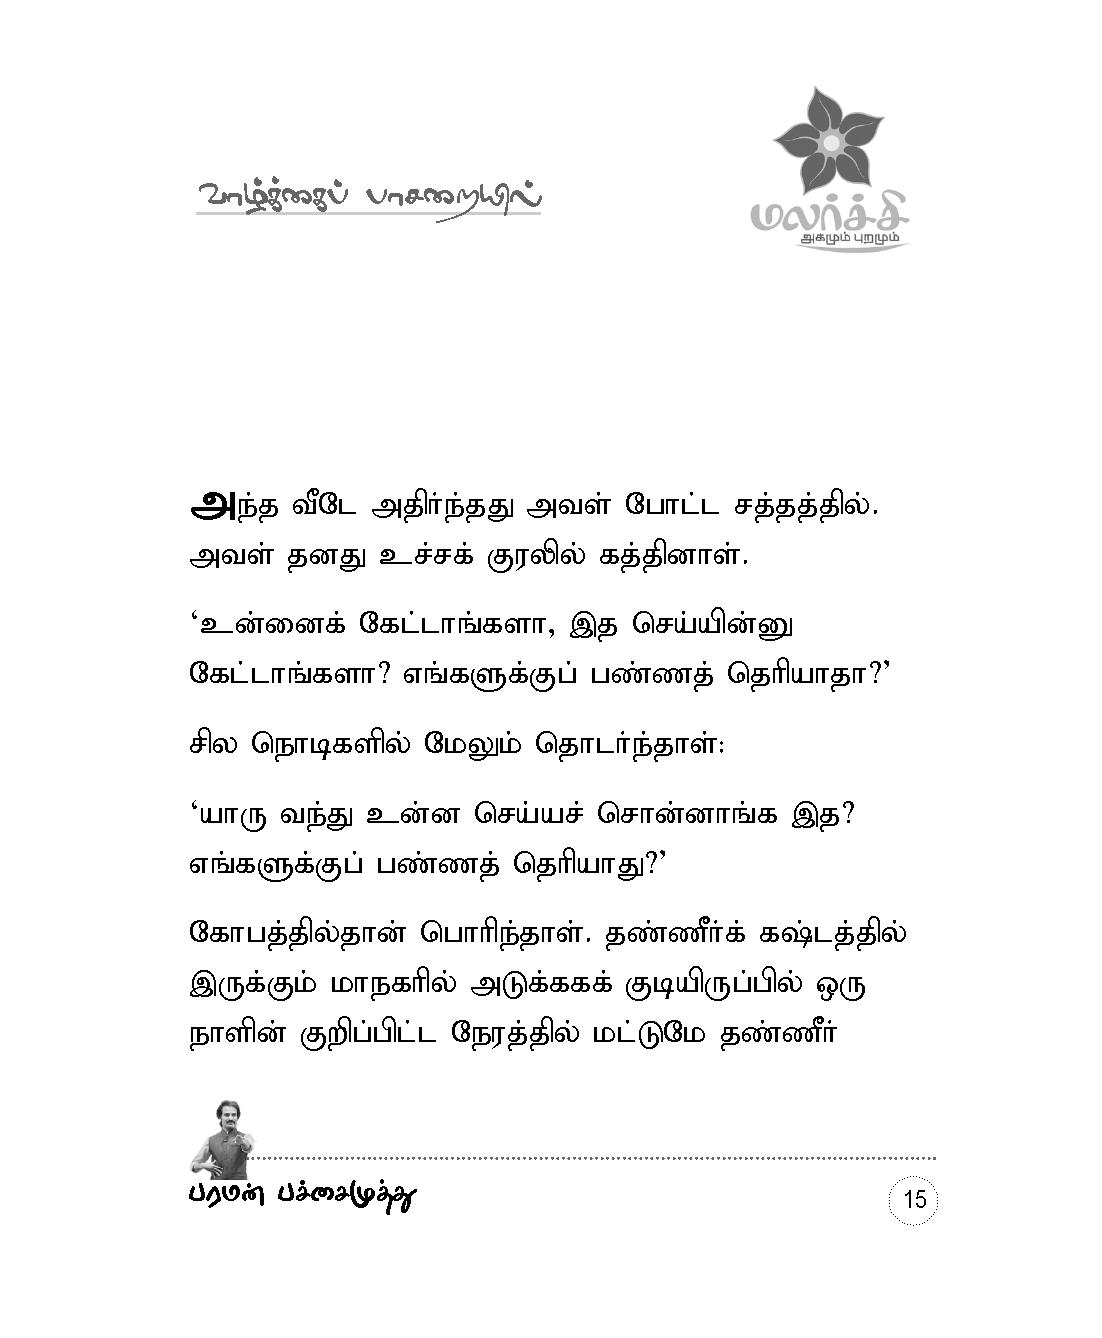 வாழ்க்கைப் பாசறையில்
மலர்ச்சி
அகமும் புறமும்
அந்த வீடே அதிர்ந்தது அவள் போட்ட சத்தத்தில்.
அவள் தனது உச்சக் குரலில் கத்தினாள்.
‘உன்னைக் கேட்டாங்களா, இத செய்யின்னு
கேட்டாங்களா? எங்களுக்குப் பண்ணத் தெரியாதா?’
சில நொடிகளில் மேலும் தொடர்ந்தாள்:
‘யாரு வந்து உன்ன செய்யச் சொன்னாங்க இத?
எங்களுக்குப் பண்ணத் தெரியாது?’
கோபத்தில்தான் பொரிந்தாள். தண்ணீர்க் கஷ்டத்தில்
இருக்கும் மாநகரில் அடுக்ககக் குடியிருப்பில் ஒரு
நாளின் குறிப்பிட்ட நேரத்தில் மட்டுமே தண்ணீர்
பரமன் பச்சைமுத்து
15